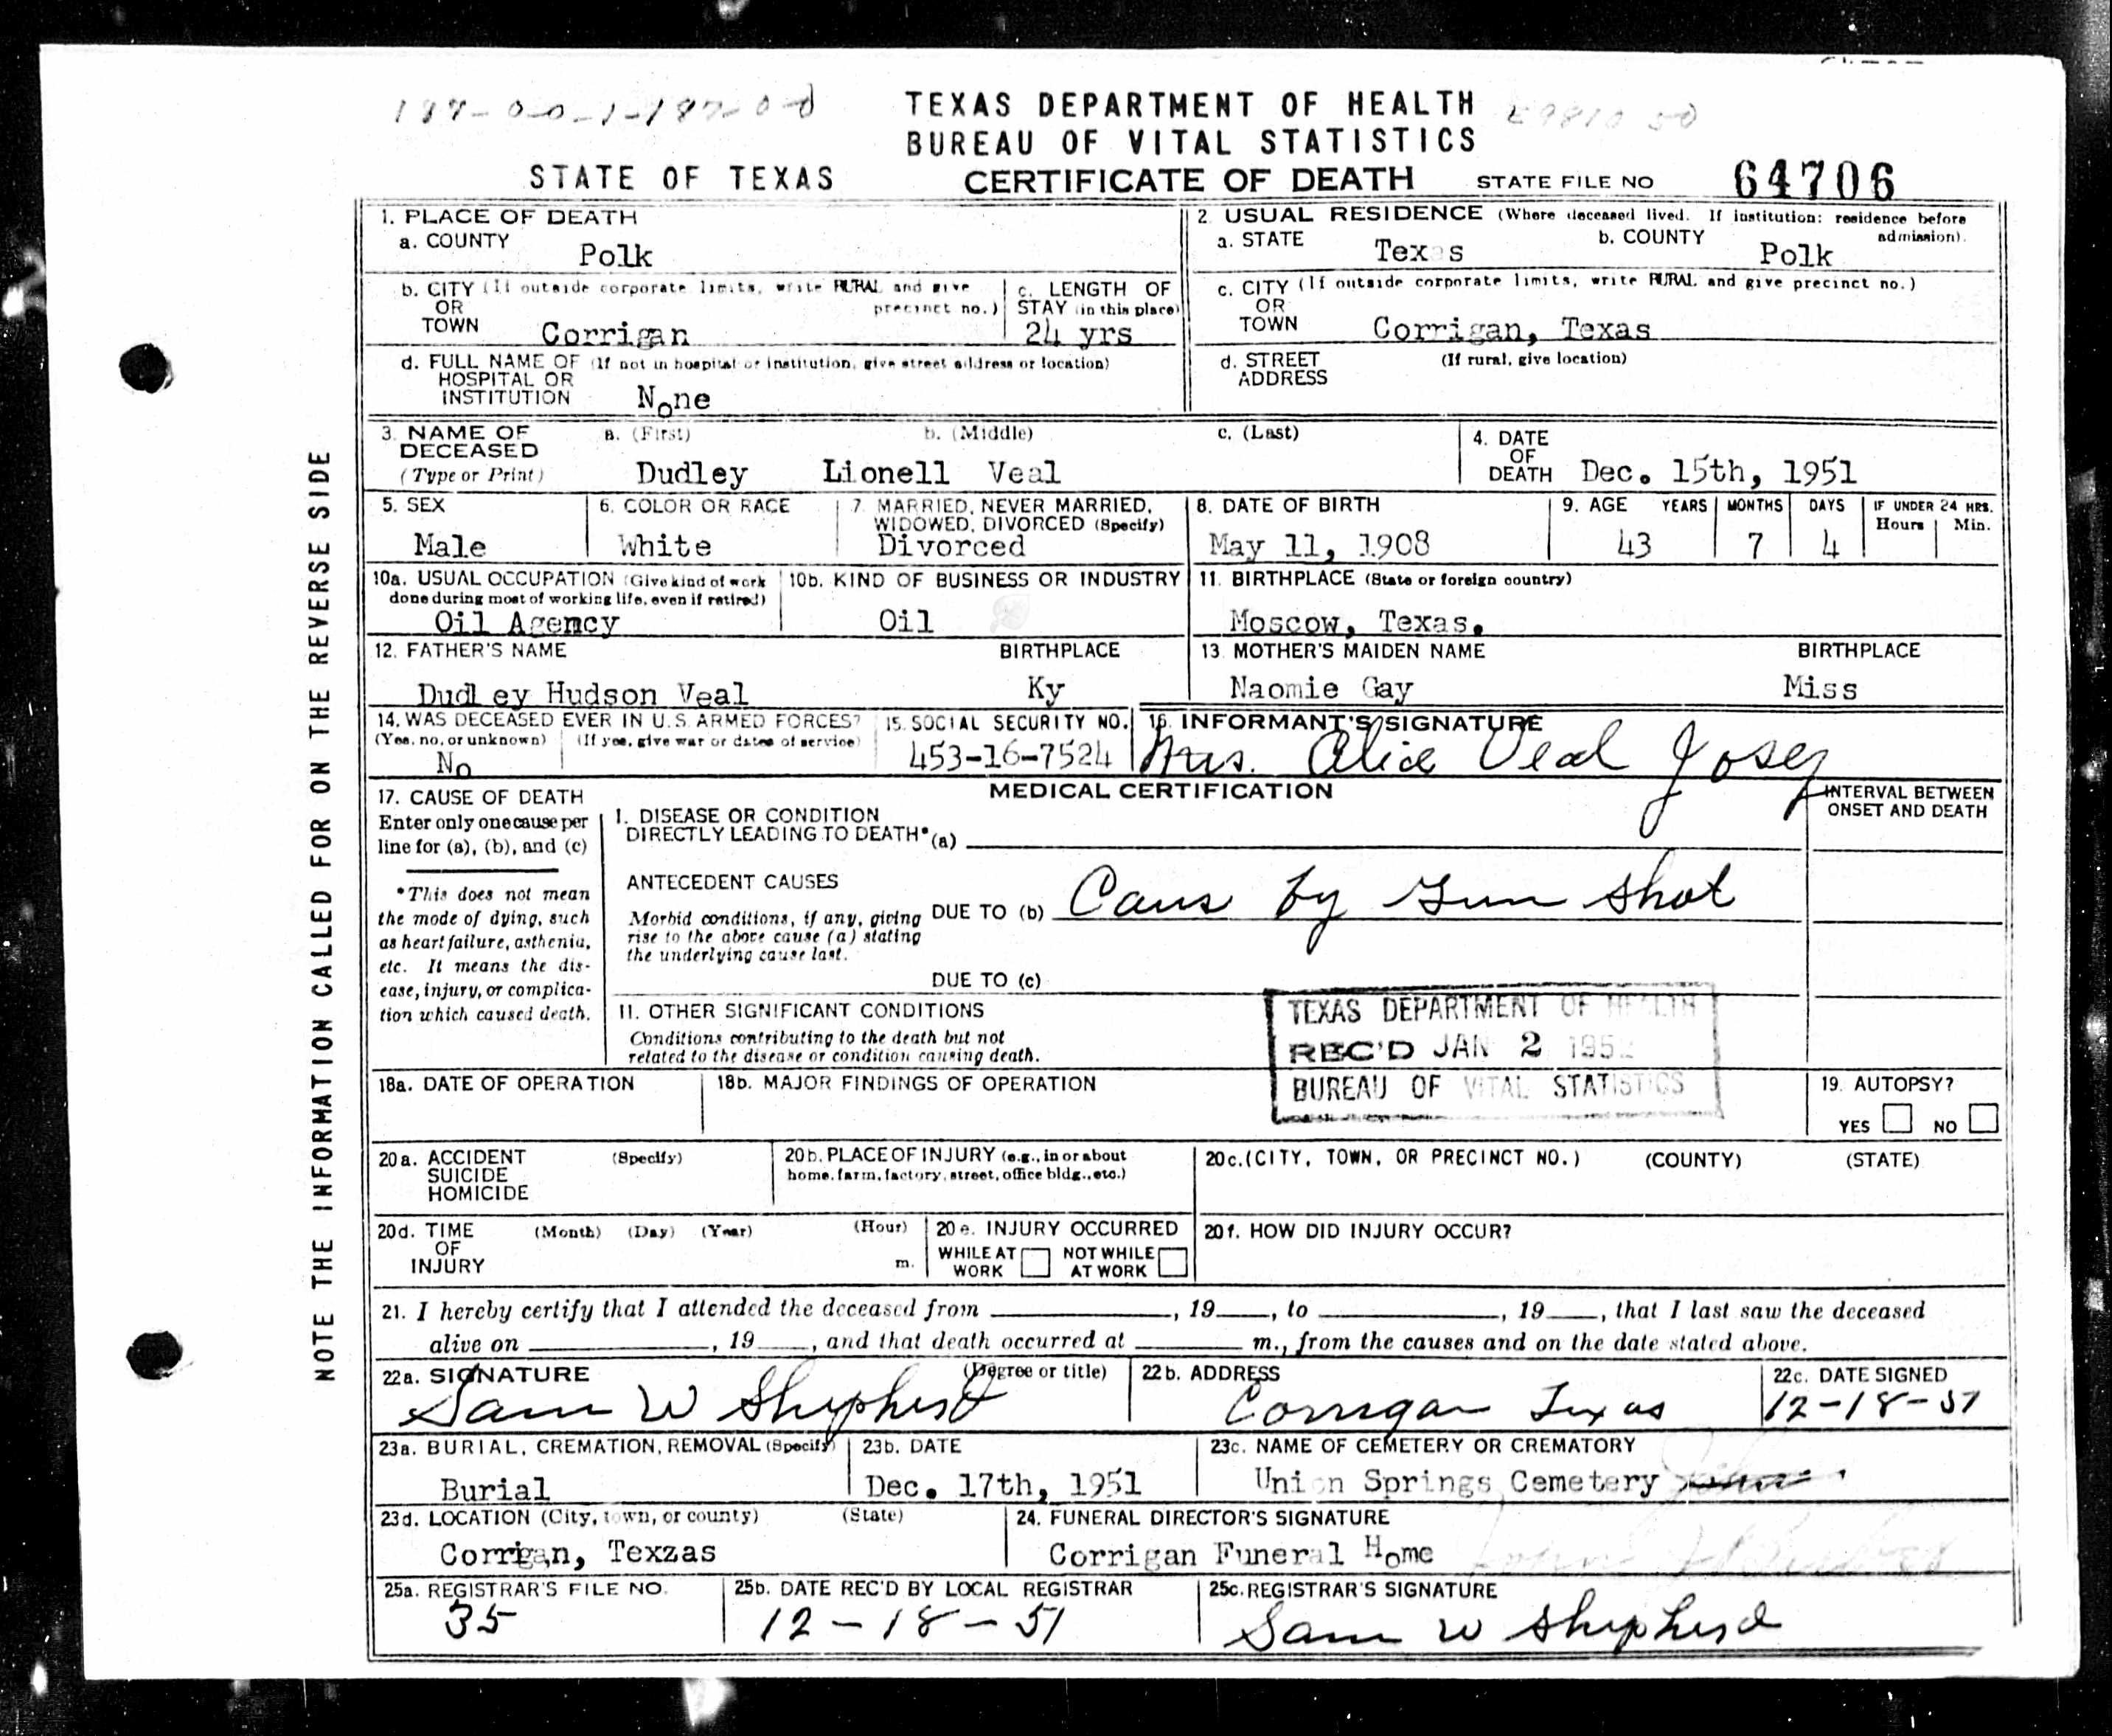 187-00-1-187-0-0
TEXAS DEPARTMENT OF HEALTH
BUREAU OF VITAL STATISTICS
STATE OF TEXAS CERTIFICATE OF DEATH STATE FILE NO 64706
NOTE THE INFORMATION CALLED FOR ON THE REVERSE SIDE
1. PLACE OF DEATH
a. COUNTY Polk
2. USUAL RESIDENCE (Where deceased lived. If institution: residence before admission).
a. STATE Texas b. COUNTY Polk
b. CITY (If outside corporate limits, write RURAL and give precinct no.)
OR
TOWN Corrigan
c. LENGTH OF
STAY (in this place)
24 yrs
c. CITY (If outside corporate limits, write RURAL and give precinct no.)
OR
TOWN Corrigan, Texas
d. FULL NAME OF (If not in hospital or institution, give street address or location)
HOSPITAL OR
INSTITUTION None
d. STREET (If rural, give location)
ADDRESS
3. NAME OF a. (First) b. (Middle) c. (Last)
DECEASED
(Type or Print) Dudley Lionell Veal
4. DATE
OF
DEATH Dec. 15th, 1951
5. SEX
Male
6. COLOR OR RACE
White
7. MARRIED, NEVER MARRIED,
WIDOWED, DIVORCED (Specify)
Divorced
8. DATE OF BIRTH
May 11, 1908
9. AGE YEARS MONTHS DAYS IF UNDER 24 HRS.
Hours Min.
43 7 4
10a. USUAL OCCUPATION (Give kind of work
done during most of working life, even if retired)
Oil Agency
10b. KIND OF BUSINESS OR INDUSTRY
Oil
11. BIRTHPLACE (State or foreign country)
Moscow, Texas.
12. FATHER'S NAME BIRTHPLACE
Dudley Hudson Veal Ky
13. MOTHER'S MAIDEN NAME BIRTHPLACE
Naomie Gay Miss
14. WAS DECEASED EVER IN U.S. ARMED FORCES?
(Yes, no, or unknown) (If yes, give war or dates of service)
No
15. SOCIAL SECURITY NO.
453-16-7524
16. INFORMANT'S SIGNATURE
Mrs. Alice Veal Josey
MEDICAL CERTIFICATION
17. CAUSE OF DEATH
Enter only one cause per
line for (a), (b), and (c)
*This does not mean
the mode of dying, such
as heart failure, asthenia,
etc. It means the dis-
ease, injury, or complica-
tion which caused death.
I. DISEASE OR CONDITION
DIRECTLY LEADING TO DEATH* (a)
ANTECEDENT CAUSES
Morbid conditions, if any, giving
rise to the above cause (a) stating
the underlying cause last.
DUE TO (b) Caus by Gun shot
DUE TO (c)
INTERVAL BETWEEN
ONSET AND DEATH
II. OTHER SIGNIFICANT CONDITIONS
Conditions contributing to the death but not
related to the disease or condition causing death.
TEXAS DEPARTMENT OF HEALTH
REC'D JAN 2 1952
BUREAU OF VITAL STATISTICS
18a. DATE OF OPERATION 18b. MAJOR FINDINGS OF OPERATION
19. AUTOPSY?
YES NO
20a. ACCIDENT (Specify)
SUICIDE
HOMICIDE
20b. PLACE OF INJURY (e.g., in or about
home, farm, factory, street, office bldg., etc.)
20c. (CITY, TOWN, OR PRECINCT NO.) (COUNTY) (STATE)
20d. TIME (Month) (Day) (Year) (Hour)
OF
INJURY m.
20e. INJURY OCCURRED
WHILE AT WORK NOT WHILE AT WORK
20f. HOW DID INJURY OCCUR?
21. I hereby certify that I attended the deceased from , 19 , to , 19 , that I last saw the deceased
alive on , 19 , and that death occurred at m., from the causes and on the date stated above.
22a. SIGNATURE (Degree or title)
Sam W Shepherd
22b. ADDRESS
Corrigan Texas
22c. DATE SIGNED
12-18-51
23a. BURIAL, CREMATION, REMOVAL (Specify)
Burial
23b. DATE
Dec. 17th, 1951
23c. NAME OF CEMETERY OR CREMATORY
Union Springs Cemetery
23d. LOCATION (City, town, or county) (State)
Corrigan, Texzas
24. FUNERAL DIRECTOR'S SIGNATURE
Corrigan Funeral Home
25a. REGISTRAR'S FILE NO.
35
25b. DATE REC'D BY LOCAL REGISTRAR
12-18-51
25c. REGISTRAR'S SIGNATURE
Sam W Shepherd